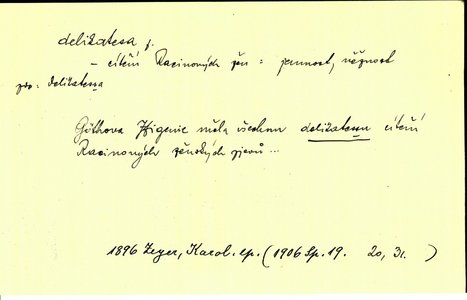 delikatesa f.
– cítění Racinových žen = jemnost, něžnost
delikatessa
Göthova Ifigenie měla všechnu delikatessu cítění
Racinových ženských zjevů ...
1896 Zeyer, Karol. ep. (1906 Sp. 19. 20, 31. )